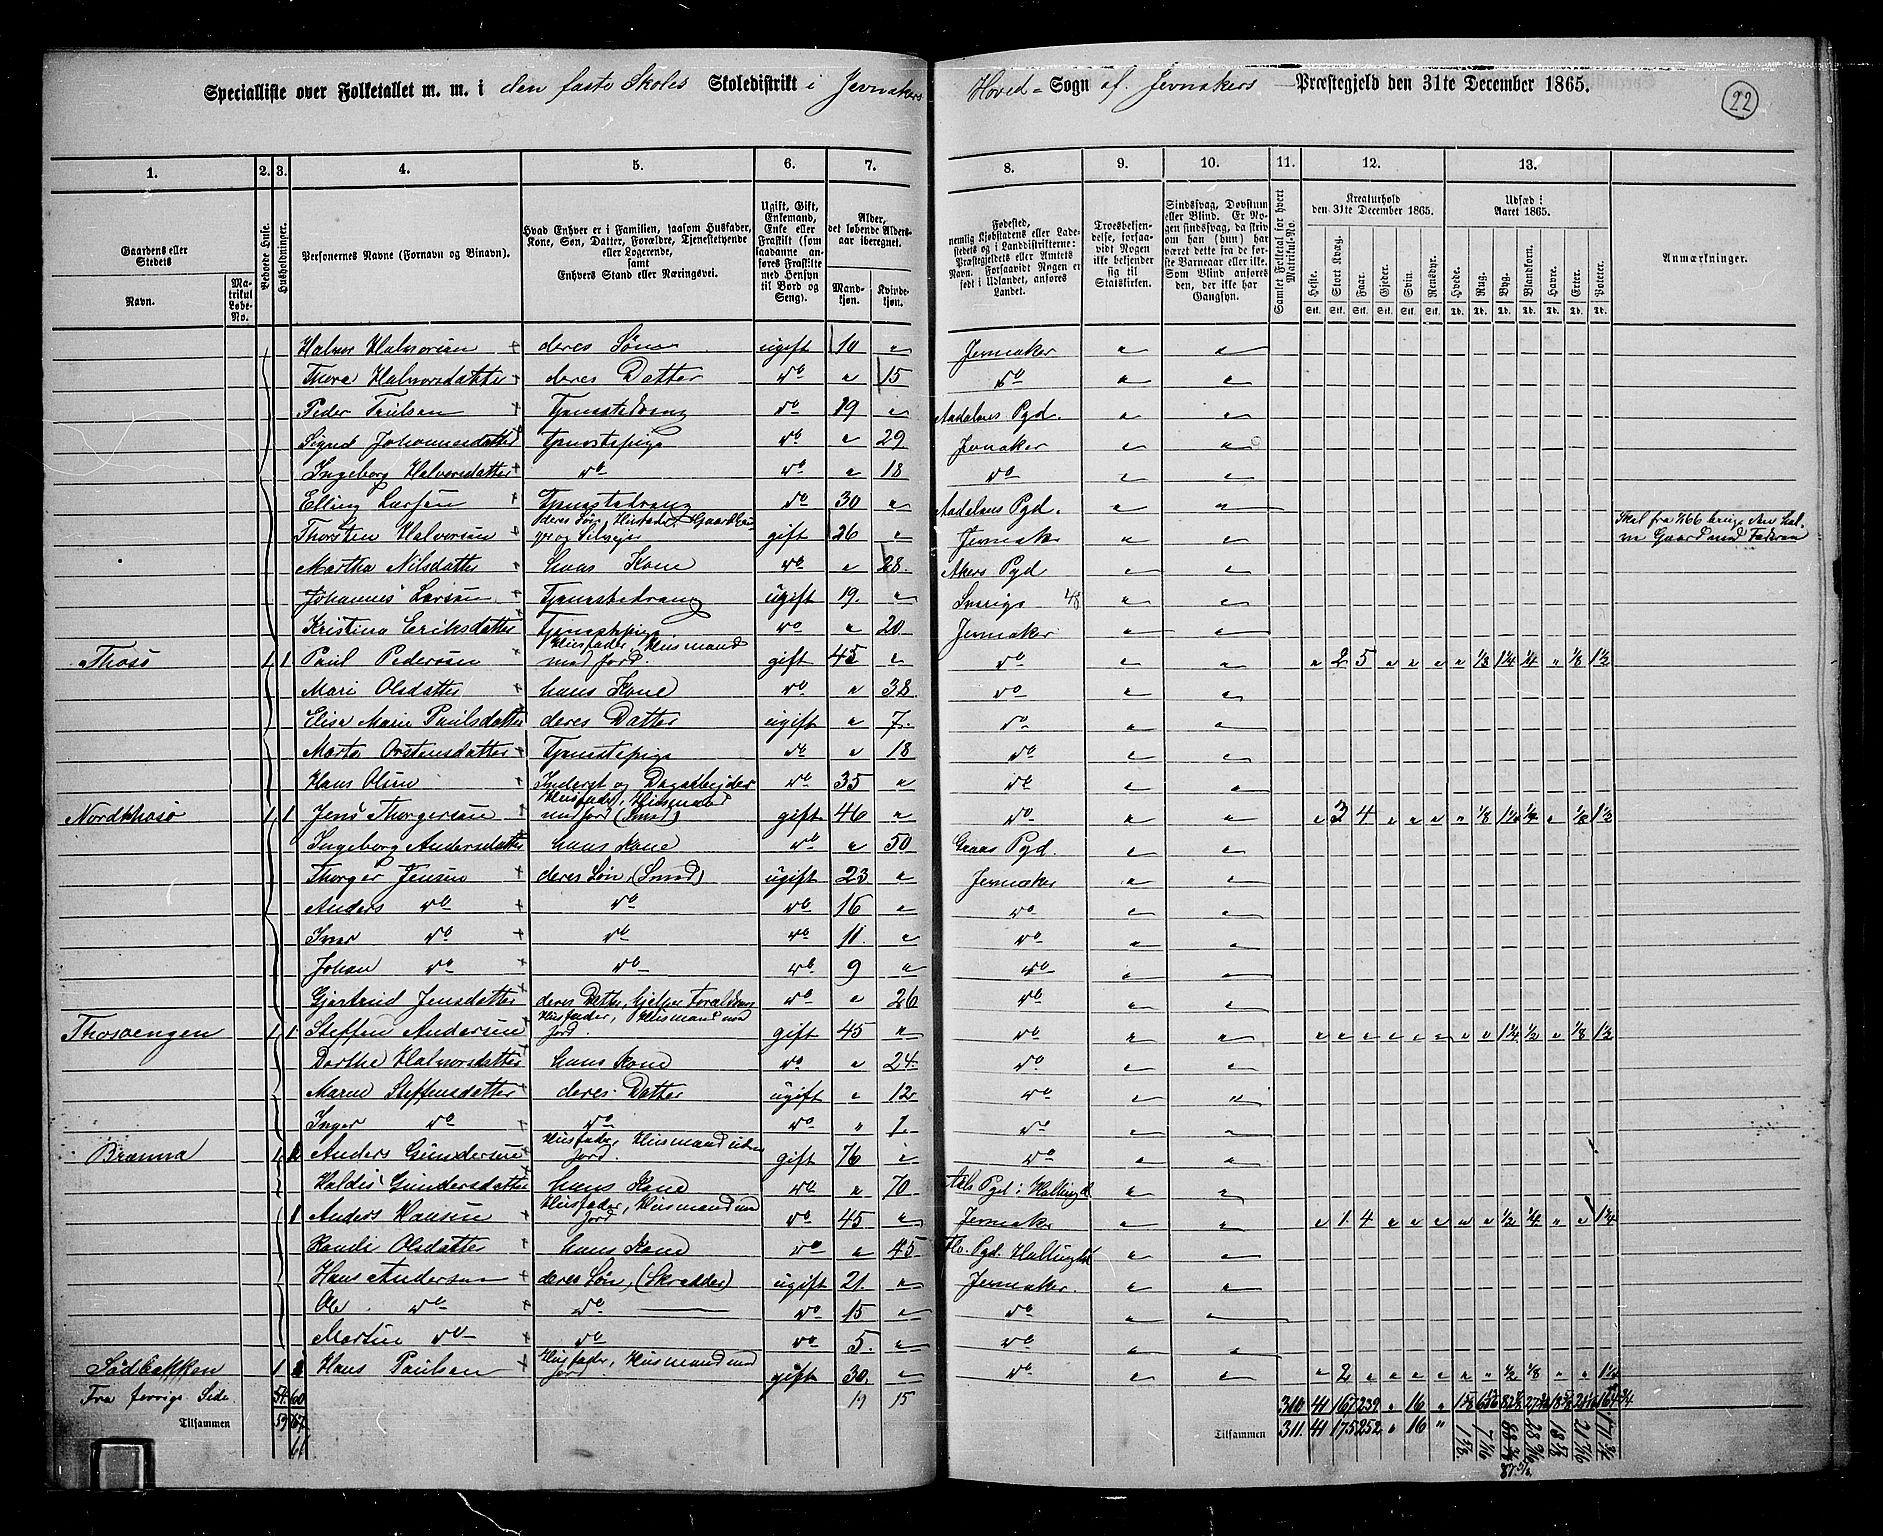 Specialliste over Folketallet m. m. i den faste Skoles Skoledistrikt i Jevnakers Hoved-Sogn af Jevnakers Præstegjeld den 31te December 1865.
22
1. 2. 3. 4. 5. 6. 7. 8. 9. 10. 11. 12. 13.
Gaardens eller Stedets
Navn.
Matrikul Løbe-No.
Beboede Huse.
Husholdninger.
Personernes Navne (Fornavn og Binavn).
Hvad Enhver er i Familien, saasom Husfader, Kone, Søn, Datter, Forældre, Tjenestetyende eller Logerende, samt Enhvers Stand eller Næringsvei.
Ugift, Gift, Enkemand, Enke eller Fraskilt (som saadanne anføres Fraskilte med Hensyn til Bord og Seng).
Alder, det løbende Aldersaar iberegnet.
Mandkjøn. Kvindekjøn.
Fødested, nemlig Kjøbstadens eller Ladestedets og i Landdistrikterne: Præstegjeldets eller Amtets Navn. Forsaavidt Nogen er født i Udlandet, anføres Landet.
Troesbekjendelse, forsaavidt Nogen ikke bekjender sig til Statskirken.
Sindssvag, Døvstum eller Blind. Er Nogen sindssvag, da skrives om han (hun) har været dette fra de første Barneaar eller ikke. Som Blind anføres den, der ikke har Gangsyn.
Samlet Folketal for hvert Matrikuls-No.
Kreaturhold den 31te December 1865.
Heste. Stort Kvæg. Faar. Gjeder. Svin. Rensdyr.
Udsæd i Aaret 1865.
Hvede. Rug. Byg. Blandkorn. Havre. Erter. Poteter.
Anmærkninger.
Halvor Halvorsen + deres Søn ugift 10 " Jevnaker " "
Thora Halvorsdatter + deres Datter do " 15 do " "
Peder Paulsen + Tjenestedreng do 19 " Aadalens Pgd. " "
Signe Johannesdatter Tjenestepige do " 29 Jevnaker " "
Ingeborg Halvorsdatter + do do " 18 do " "
Elling Larsen + Tjenestedreng do 30 " Aadalens Pgd. " "
Thorsten Halvorsen + deres Søn, Husfader, Gaardbruger og Selveier gift 26 " Jevnaker " " Skal fra 1/66 bruge den halve Gaard med Faderen
Martha Nilsdatter + hans Kone do " 28. Akers Pgd " "
Johannes Larsen + Tjenestedreng ugift 19. " Sverige " "
Kristina Eriksdatter + Tjenestepige do " 20 Jevnaker " "
Thosø 1 1 Paul Pedersen + Husfader, Husmand med Jord. gift 45 " do " " " 2 5 " " " " 1/8 1 1/4 1/4 " 1/8 1 1/2
Mari Olsdatter + hans Kone do " 38 do " "
Elise Marie Paulsdatter deres Datter ugift " 7. do " "
Marte Orstensdatter + Tjenestepige do " 18 do " "
Hans Olsen + Inderst og Dagarbeider do 35 " do " "
Nordthosø 1 1 Jens Thorgersen + Husfader, Husmand med Jord (Smed) gift 46 " do " " " 3 4 " " " " 1/8
Ingeborg Andersdatter hans Kone do " 50 Grans Pgd. " "
Thorger Jensen + deres Søn, (Smed) ugift 23 " Jevnaker " "
Anders do + do do 16 " do " "
Iver do + do do 11. " do " "
Johan do + do do 9 " do " "
Gjertrud Jensdatter deres Datter, hjelper Forældrene do " 26 do " "
Thosøengen 1 1 Steffen Andersen + Husfader, Husmand med Jord. gift 45 " do " " " " " " " " " " 1 1/4 1/2 " 1/8 1 1/2
Dorthe Halvorsdatter + hans Kone do " 24. do " "
Maren Steffensdatter + deres Datter ugift " 12 do " "
Inger do + do do " 7. do " "
Brænna 1 Anders Gundersen + Husfader, Husmand uden Jord. gift 76 " do " "
Haldis Gundersdatter hans Kone do " 70 Aals Pgd i Hallingd " "
1 Anders Hansen + Husfader, Husmand med Jord do 45 " Jevnaker " " " 1 4 " " " " " 1/2 1/4 " " 1 1/4
Randi Olsdatter + hans Kone do " 45 Pgd. Hallingdal " "
Hans Andersen + deres Søn, (Skrædder) ugift 21. " Jevnaker. " "
Ole do + do do 15 " do " "
Martin do + do do 5. " do " "
Sødbakken 1 Hans Paulsen + Husfader, Husmand med Jord. gift 30. " do " " " 2 " " " " " " 1/2 1/8 " " 1 1/4
Fra forrige Side 54 60 19 15 310 41 167 239 " 16 "
Tilsammen 59 67 Tilsammen 311. 41 175 252 " 16 "
61